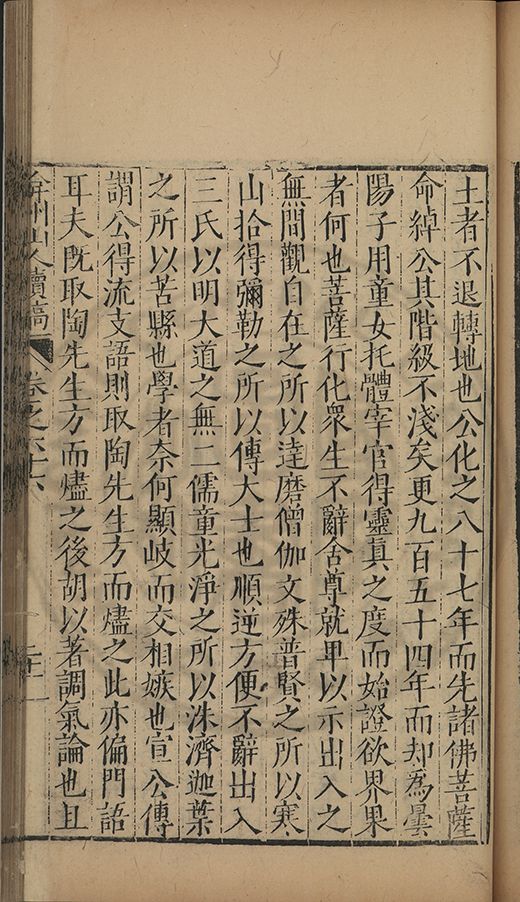 土者不退轉地也公化之八十七年而先諸佛菩薩
命綽公其階級不淺矣更九百五十四年而却爲曇
陽子用童女托體宰官得靈真之度而始證欲界果
者何也菩薩行化衆生不辭舍尊就卑以示出入之
無間觀自在之所以達磨僧伽文殊普賢之所以寒
山拾得彌勒之所以傳大士也順逆方便不辭出入
三氏以明大道之無二儒童光淨之所以洙濟迦葉
之所以苦縣也學者奈何顯岐而交相嫉也宣公傳
謂公得流支語則取陶先生方而燼之此亦偏門語
耳夫既取陶先生方而燼之後胡以著調氣論也且
弇州山人續稿 卷之六十六